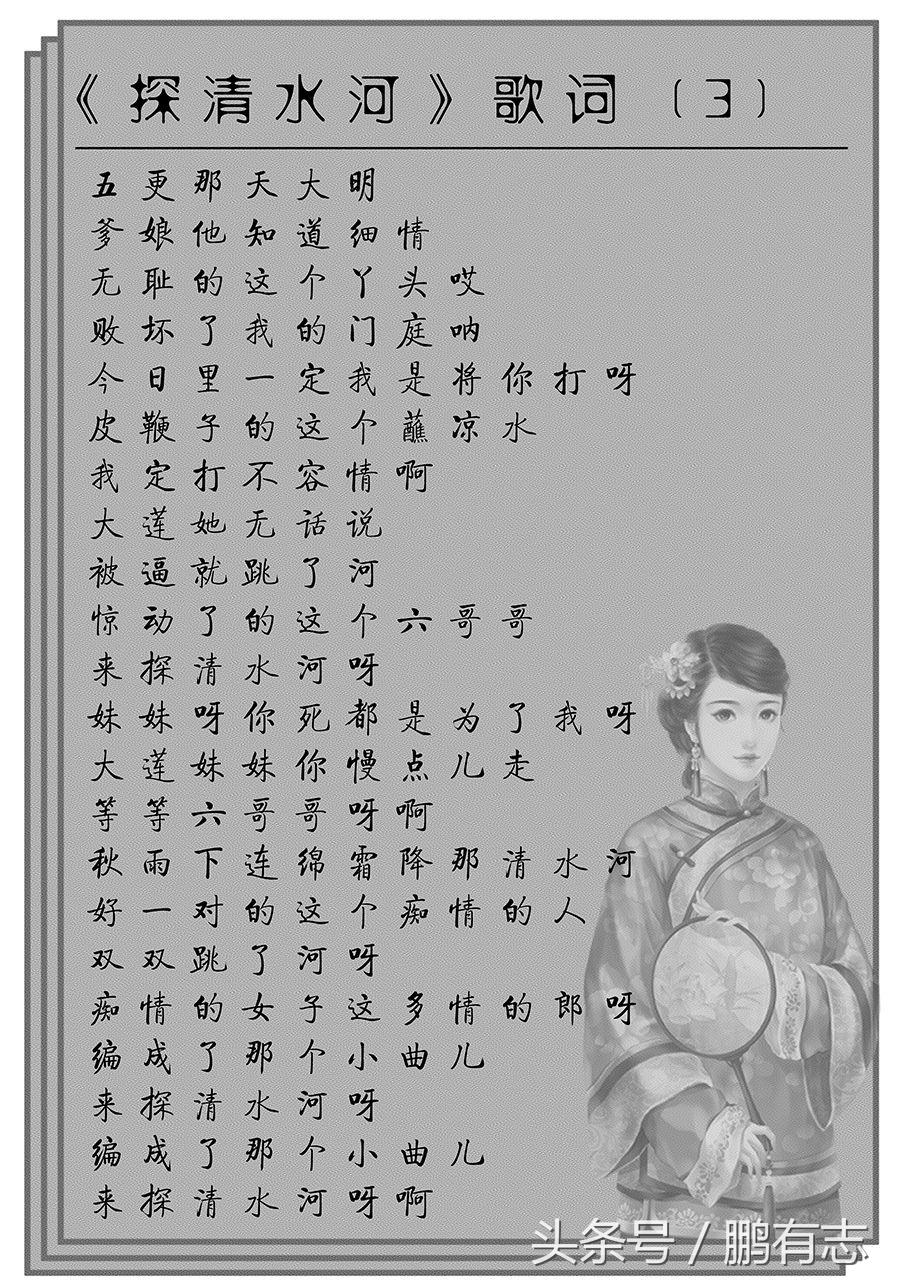 《探清水河》歌词（3）
五更那天大明
爹娘他知道细情
无耻的这个丫头哎
败坏了我的门庭呐
今日里一定我是将你打呀
皮鞭子的这个蘸凉水
我定打不容情啊
大莲她无话说
被逼就跳了河
惊动了的这个六哥哥
来探清水河呀
妹妹呀你死都是为了我呀
大莲妹妹你慢点儿走
等等六哥哥呀啊
秋雨下连绵霜降那清水河
好一对的这个痴情的人
双双跳了河呀
痴情的女子这多情的郎呀
编成了那个小曲儿
来探清水河呀
编成了那个小曲儿
来探清水河呀啊
头条号 / 鹏有志